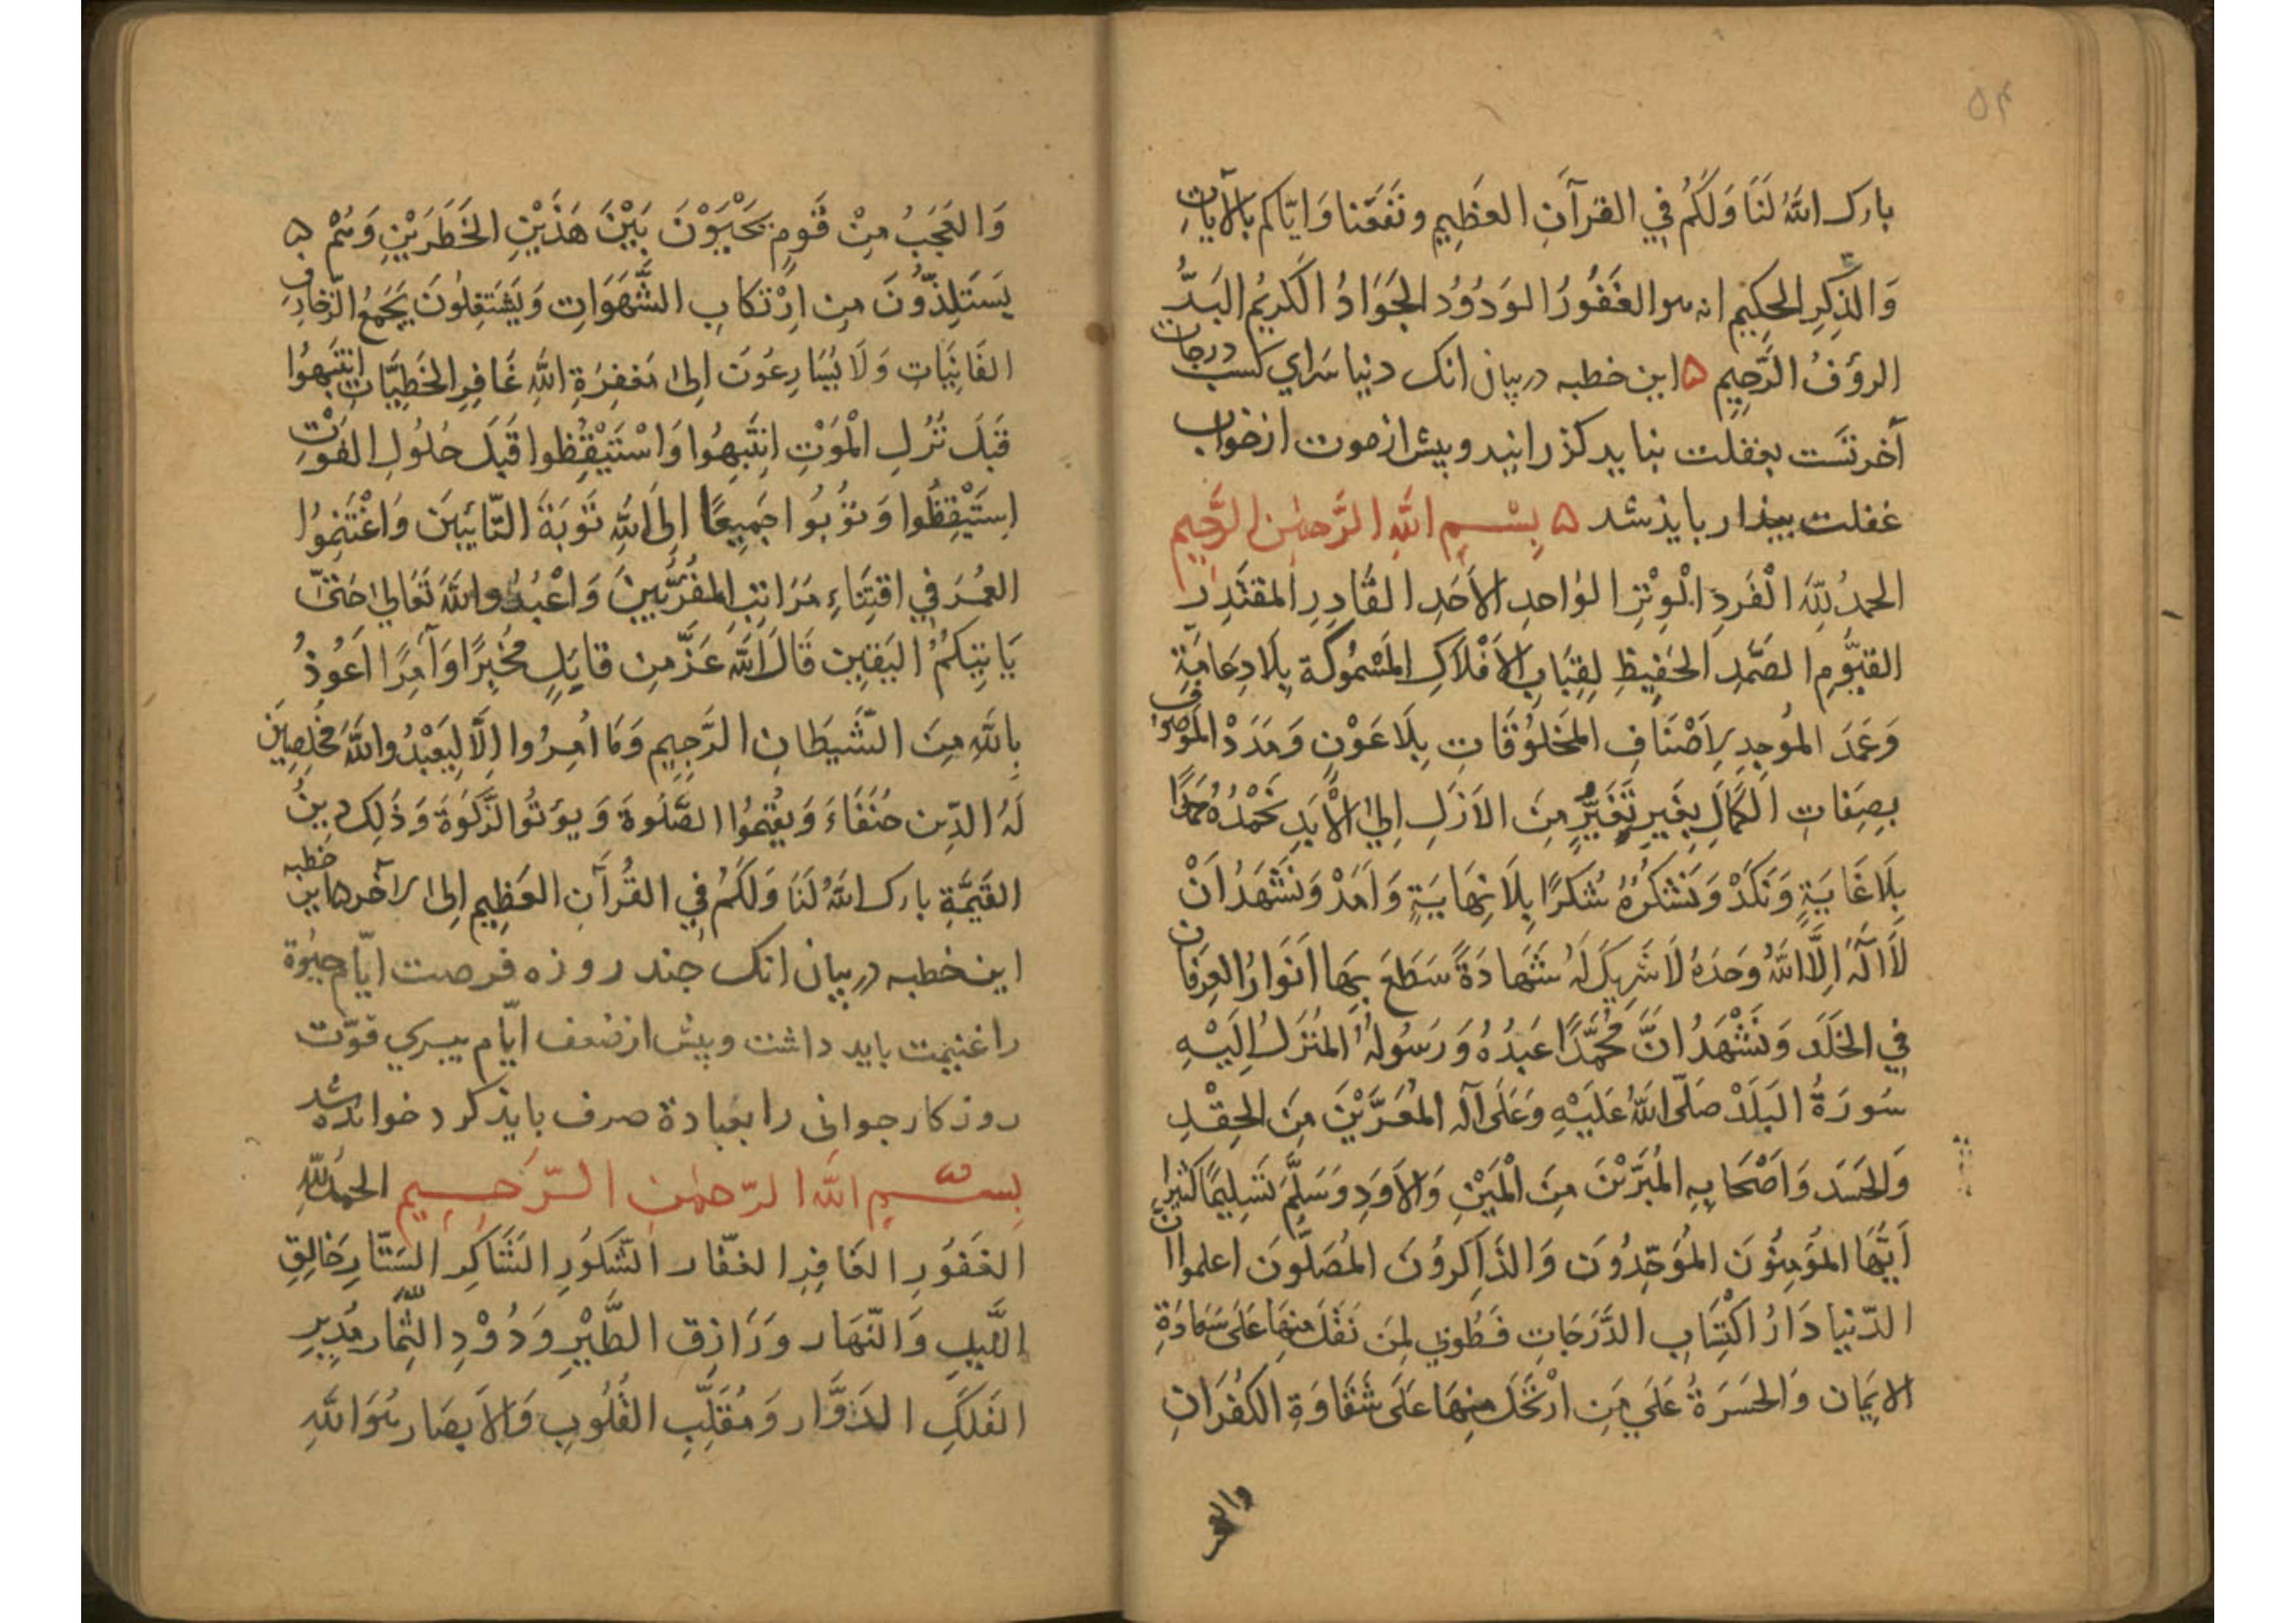 ۵۴
بارک اللهُ لَنَا وَلَكُمْ فِي القرآنِ العَظِيمِ ونَفَعَنا وَايّاكم بالآياتِ
وَالذِّكِرِ الحكِيم انه هو الغَفُورُ الوَدُوُد الجَوَادُ الكَريمُ البَرُّ
الرؤفُ الرَّحِيمِ ۵ این خطبه در بیان انک دنیا سَراي کسب درجات
آخرتَست بغفلت بنا ید کذرانید و بیش از موت از خواب
غفلت بیذار بایذ شد ۵ بِسْمِ اللهِ الرَّحمٰنِ الرَّحِيمِ
الحمدُ لِلّهِ الْفَردِ الْوِتْرِ الوَاحدِ الاَحَدِ القَادِرِ المقتَدِر
القيُّومِ الصَمَّدِ الحَفِيظِ لِقِبَابِ الاَفْلاَكِ المَسْمُوكة بِلَا دِعَامَةٍ
وَعَمَدَ المُوجِدِ لِاَصْنَافِ المَخلوُقَاتِ بِلَا عَوْنٍ وَمَدَدْ المَوصُوفِ
بِصِفَاتِ الكَمَالِ بِغَيرِ تَغَيُّرٍ مِنَ الاَزَلِ اِلیٰ الاَبَدِ نَحْمَدُهُ حَمدًا
بِلَا غَايَةٍ وَنَكَدْ وَنَشْكرُهُ شُكرًا بِلَا نِهَايَةٍ وَاَمَدْ وَنَشَهَدُ اَنْ
لَا اِلٰهَ اِلَّا اللهُ وَحدَهُ لَا شَرِيكَ لَهُ شَهَادَةً سَطَعَ بِهَا اَنوَارُ العِرفَان
فِي الخَلَدِ وَنَشْهَدُ انَّ مُحَمَّدًا عَبدُهُ وَرَسُولُهُ المُنزَلُ اِلَيْهِ
سُورَةُ البَلَدْ صَلّى اللهُ عَلَيْهِ وَعَلَى آلِهِ المُعَرَّيْنَ مِنَ الحِقْدِ
وَالحَسَدَ وَاَصْحَابِهِ المُبَرَّئنَ مِنَ الْمَيْنِ وَالاَوَدِ وَسَلَّمَ تَسلِيمًا كَثيرا
اَيُّهَا المُؤمِنُونَ المُوَحِّدُونَ وَالذَاكِرُونَ المُصَلُّونَ اعلموا ان
الدّنيا دَارُ اكْتِسَابِ الدَّرَجَاتِ فَطُوبٰي لِمَن نَقَلَ مِنهَا عَلَى سَعَادَةِ
الايمَان وَالحَسَرَةُ عَلَي مَنِ ارْتَحَلَ مِنهَا عَلَى شَقَاوَةِ الكُفرَانِ
والعجب
وَالعَجَبُ مِنْ قَومٍ يَحْيَوْنَ بَيْنَ هَذَيْنِ الخَطَرَيْنِ وَهُمْ ۵
يَستَلِذّوُنَ مِن اِرْتكابِ الشَّهَوَاتِ وَيَشتَغِلوُنَ بِجَمعِ الزخارِف
الفَانِيَاتِ وَلَا يُسَارِعُونَ اِلىٰ مَغفِرَةِ اللهِ غَافِرِ الخَطِيَّاتِ اِنتَبِهُوا
قَبلَ نُزُلِ المْوَتِ اِنتَبِهُوا وَاسْتَيْقِظوا قَبلَ حُلُولِ الفَوْتِ
اِستَيْقِظُوا وَتوُبُوا جَمِيعًا اِلَى اللهِ تَوبَةَ التّائِبينَ وَاغْتَنِمُوا
العُمُرَ فِي اقتِنَاءِ مَرَاتِبِ المُقَرَّبِينَ وَاعْبُدُوا اللهَ تَعَالي حَتّىٰ
يَاتِيَكُمُ اليَقِين قَالَ اللهَ عَزَّ مِن قايِلٍ مُخبِرًا وَآمِرًا اَعُوذُ
بِاللهِ مِنَ الشَيطَانِ الرَّجِيمِ وَمَا اُمِرُوا اِلَّا لِيَعْبُدُوا اللهَ مُخلِصِينَ
لَهُ الدّين حُنَفَاءَ وَيُقِيمُوا الصَّلٰوةَ وَيؤتُوا الزَّكٰوةَ وَذٰلِكَ دِينُ
القَيِّمَةِ بارک اللهُ لَنَا وَلَكُمْ فِي القُرآنِ العَظِيمِ اِلىٰ آخره این خطبه
این خطبه در بیان انک جند روزه فرصت ایّام حیٰوة
را غنیمت باید داشت و بیش از ضعف ایّام بیری قوّت
روزکار جوانی را بعبادة صرف بایذ کرد خوانده شد
بِسْمِ اللهِ الرّحمٰنِ الرَّحِيمِ الحَمدُ للّهِ
الغَفُورِ الغَافِرِ الغفّار الشَّكُورِ الشَاكِرِ السَتّارِ خَالِقِ
اللَّيلِ وَالنّهَار وَرَازِق الطَّيْرِ وَدُوْدِ الثِّمَار مُدِيرِ
الفَلَكِ الدَوَّار وَمُقَلِّبِ القُلُوبِ وَالاَبصَار هُوَ اللهِ